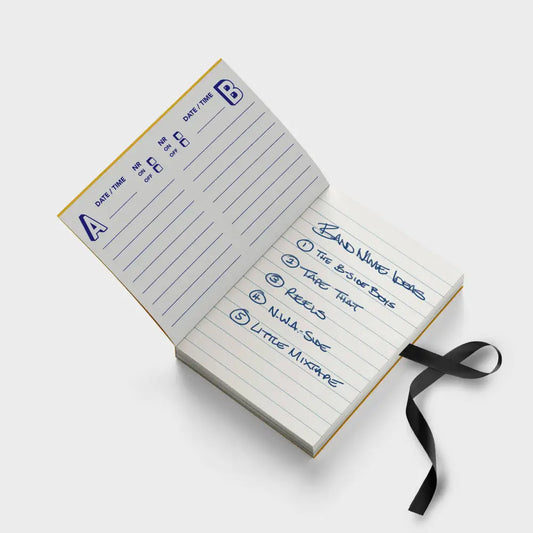 A
DATE / TIME
NR
ON
OFF
B
DATE / TIME
NR
ON
OFF
BAND NAME IDEAS
① THE B-SIDE BOYS
② TAPE THAT
③ REELS
④ N.W.A.-SIDE
⑤ LITTLE MIXTAPE